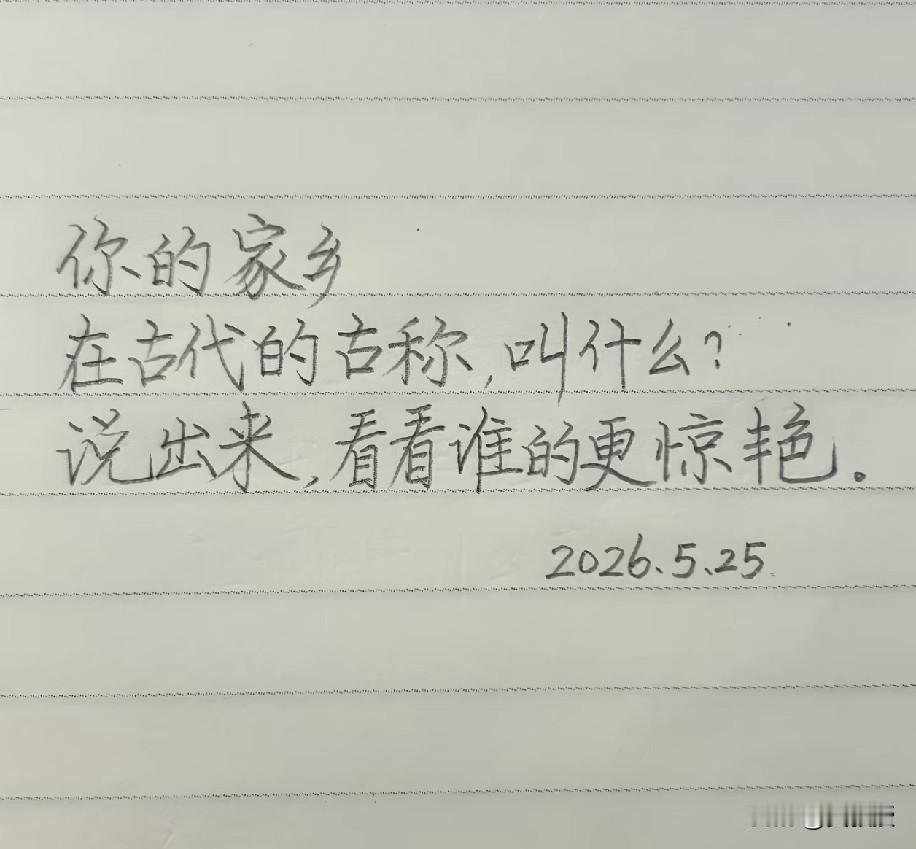 你的家乡
在古代的古称,叫什么?
说出来,看看谁的更惊艳。
2026.5.25